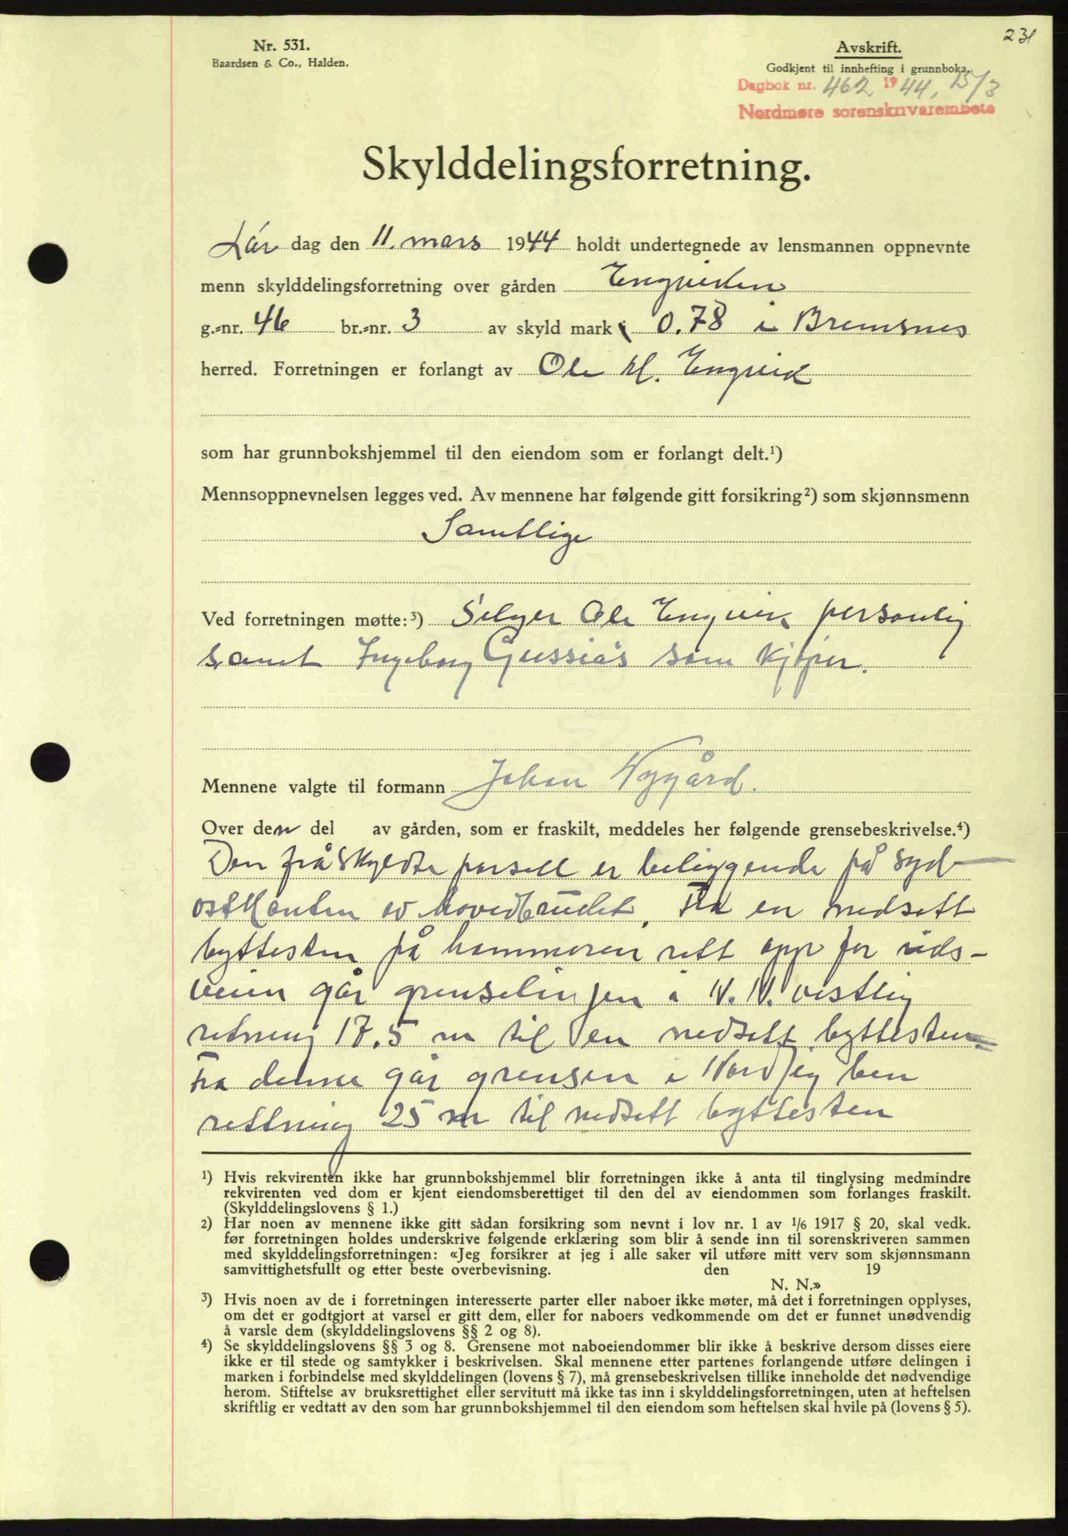 231
Nr. 531.
Baardsen & Co., Halden.
Avskrift.
Godkjent til innhefting i grunnboka.
Dagbok nr. 462 1944, 15/3
Nordmøre sorenskriverembete
Skylddelingsforretning.
Lør dag den 11. mars 1944 holdt undertegnede av lensmannen oppnevnte
menn skylddelingsforretning over gården Engviken
g.-nr. 46 br.-nr. 3 av skyld mark 0.78 i Bremsnes
herred. Forretningen er forlangt av Ole M. Engvik
som har grunnbokshjemmel til den eiendom som er forlangt delt.¹)
Mennsoppnevnelsen legges ved. Av mennene har følgende gitt forsikring²) som skjønnsmenn
Samtlige
Ved forretningen møtte:³) Selger Ole Engvik personlig
samt Ingeborg Gussiås som kjøper.
Mennene valgte til formann Johan Nygård.
Over den del av gården, som er fraskilt, meddeles her følgende grensebeskrivelse.⁴)
Den fråskyldte parsell er beliggende på syd-
ostkanten av hovedbruket. Fra en nedsatt
byttesten på hammeren rett opp for uds-
veien går grenselinjen i N.N. vestlig
retning 17.5 m til en nedsatt byttesten
Fra denne går grensen i Nordlig ben
rettning 25 m til nedsatt byttesten
¹) Hvis rekvirenten ikke har grunnbokshjemmel blir forretningen ikke å anta til tinglysing medmindre
rekvirenten ved dom er kjent eiendomsberettiget til den del av eiendommen som forlanges fraskilt.
(Skylddelingslovens § 1.)
2) Har noen av mennene ikke gitt sådan forsikring som nevnt i lov nr. 1 av 1/6 1917 § 20, skal vedk.
før forretningen holdes underskrive følgende erklæring som blir å sende inn til sorenskriveren sammen
med skylddelingsforretningen: «Jeg forsikrer at jeg i alle saker vil utføre mitt verv som skjønnsmann
samvittighetsfullt og etter beste overbevisning. den 19
N. N.»
³) Hvis noen av de i forretningen interesserte parter eller naboer ikke møter, må det i forretningen opplyses,
om det er godtgjort at varsel er gitt dem, eller for naboers vedkommende om det er funnet unødvendig
å varsle dem (skylddelingslovens §§ 2 og 8).
⁴) Se skylddelingslovens §§ 3 og 8. Grensene mot naboeiendommer blir ikke å beskrive dersom disses eiere
ikke er til stede og samtykker i beskrivelsen. Skal mennene etter partenes forlangende utføre delingen i
marken i forbindelse med skylddelingen (lovens § 7), må grensebeskrivelsen tillike inneholde det nødvendige
herom. Stiftelse av bruksrettighet eller servitutt må ikke tas inn i skylddelingsforretningen, uten at heftelsen
skriftlig er vedtatt av den som har grunnbokshjemmel til den eiendom som heftelsen skal hvile på (lovens § 5).